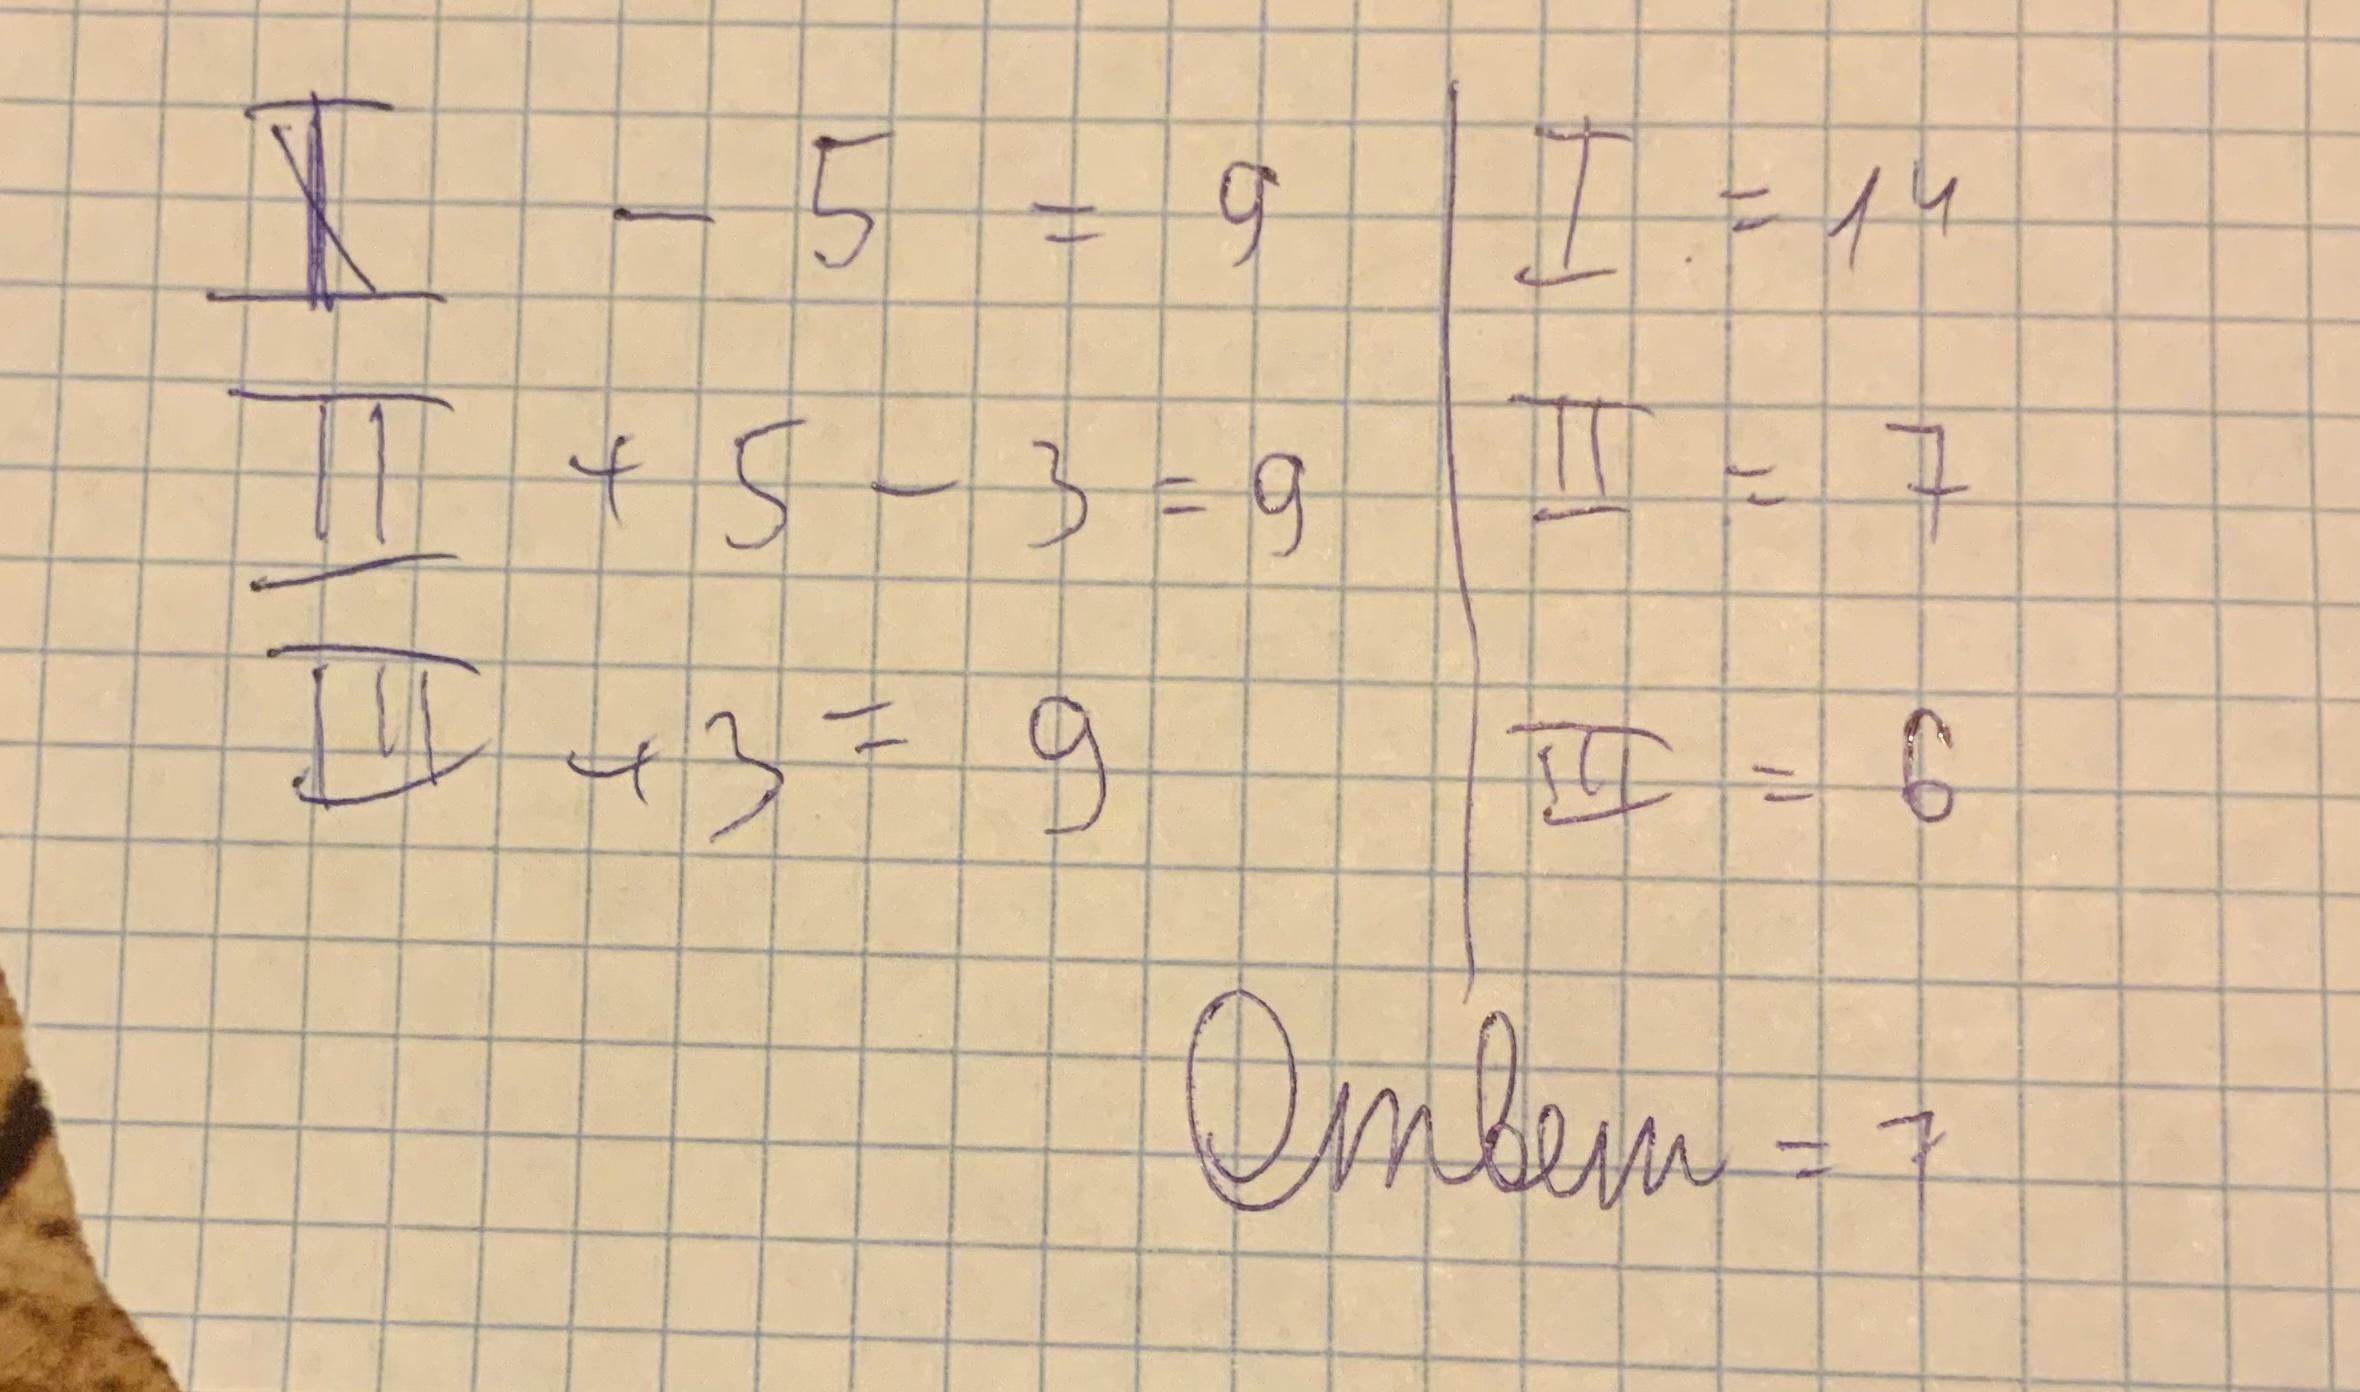 I - 5 = 9
II + 5 - 3 = 9
III + 3 = 9
I = 14
II = 7
III = 6
Ответ = 7